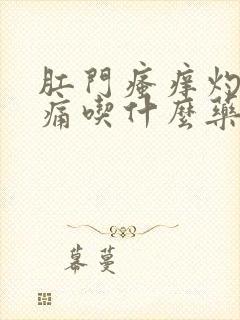 肛門瘙痒灼
痛喫什麼藥
幕蔓